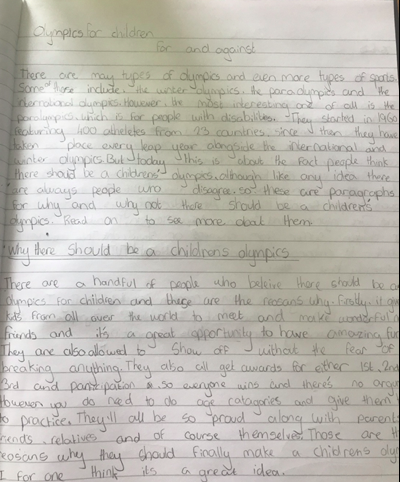 Olympics for children
for and against
There are may types of olympics and even more types of sports.
Some of those include, the winter olympics, the paraolympics and the
international olympics. However, the most interesting one of all is the
paraolympics, which is for people with disabilities. They started in 1960
featuring 400 atheletes from 23 countries, since then they have
taken place every leap year alongside the international and
winter olympics. But today this is about the fact people think
there should be a childrens' olympics, although like any idea there
are always people who disagree, so these are paragraphs
for why and why not there should be a children's
olympics. Read on to see more about them.
Why there should be a childrens olympics
There are a handful of people who beleive there should be an
olympics for children and these are the reasons why. Firstly, it
kids from all over the world to meet and make wonderful
friends and it's a great opportunity to have amazing fun
They are also allowed to show off without the fear of
breaking anything. They also all get awards for either 1st, 2nd
3rd and participation so everyone wins and there's no
However you do need to do age catagories and give them
to practice. They'll all be so proud along with parents
relatives and of course themselves. Those are the
reasons why they should finally make a children's
I for one think its a great idea.